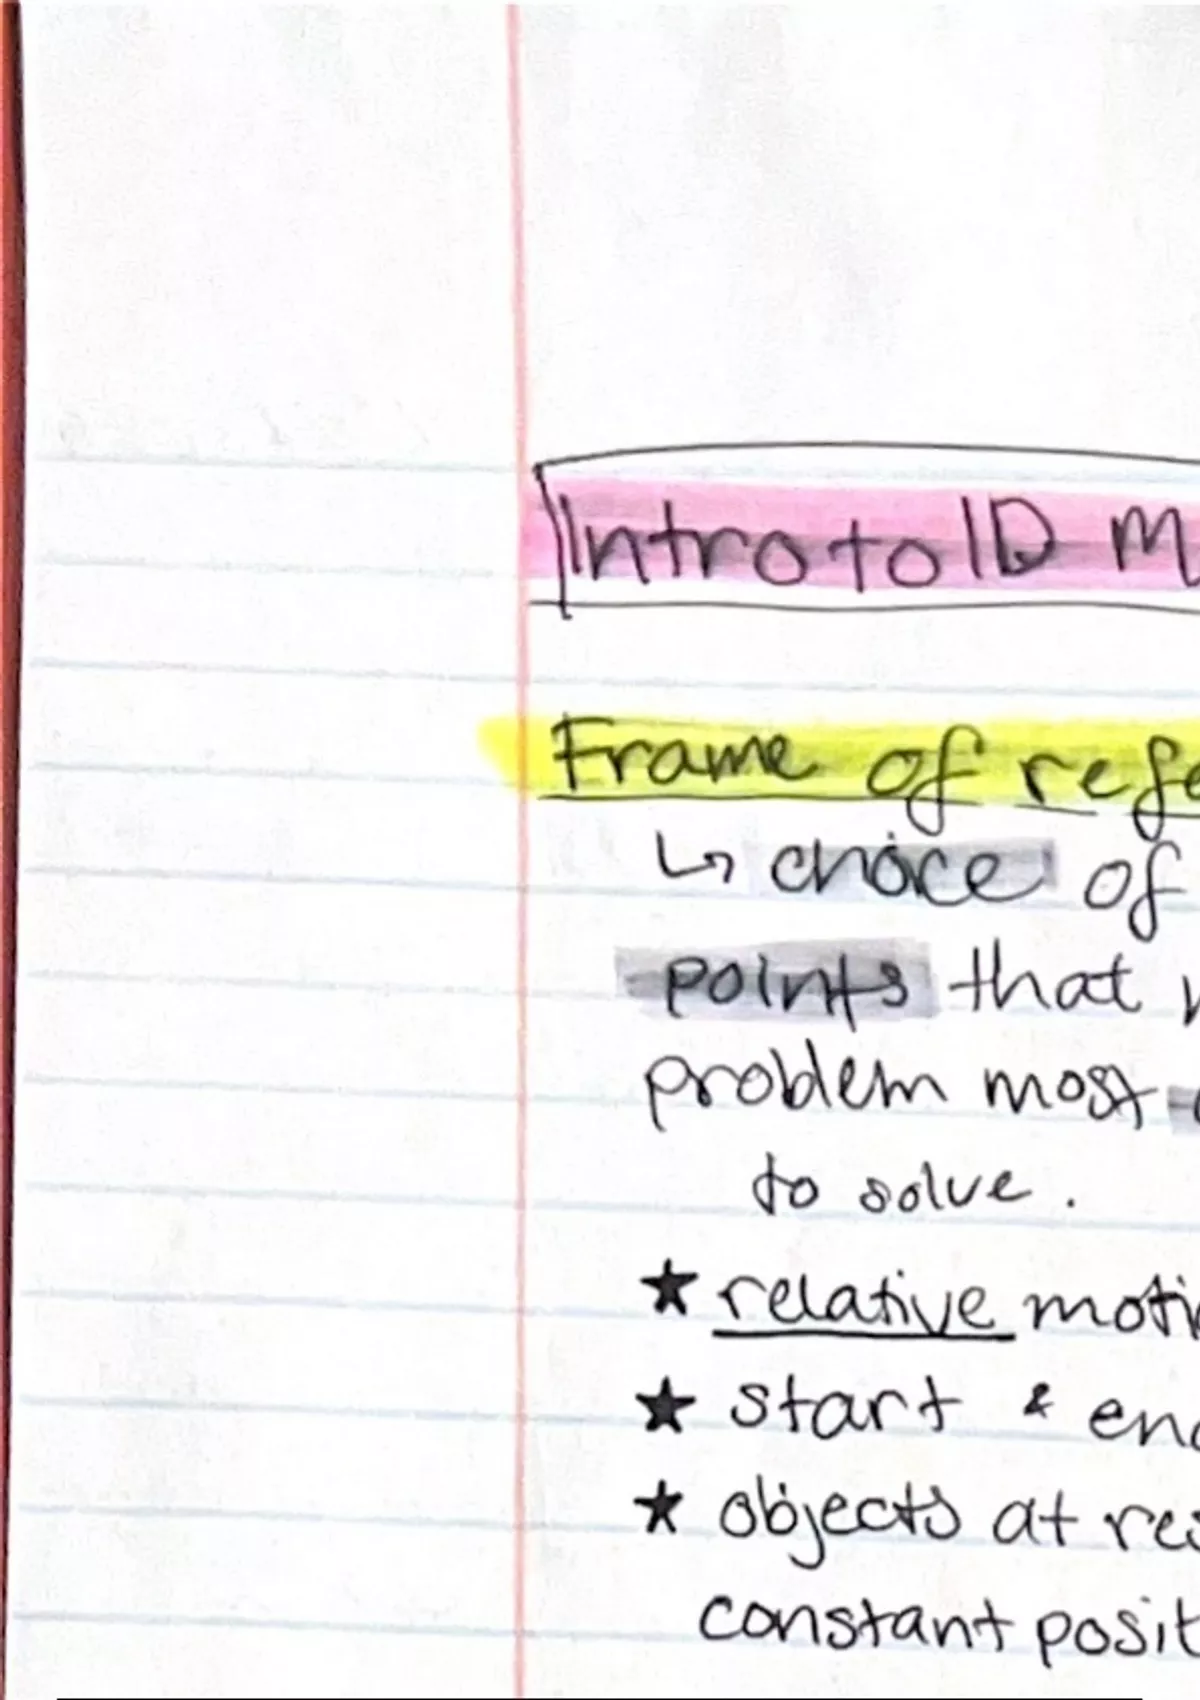 Intro to 1D M
Frame of refe
↳ choice of
points that
problem most
to solve.
★ relative moti
★ start & end
★ objects at res
constant posit